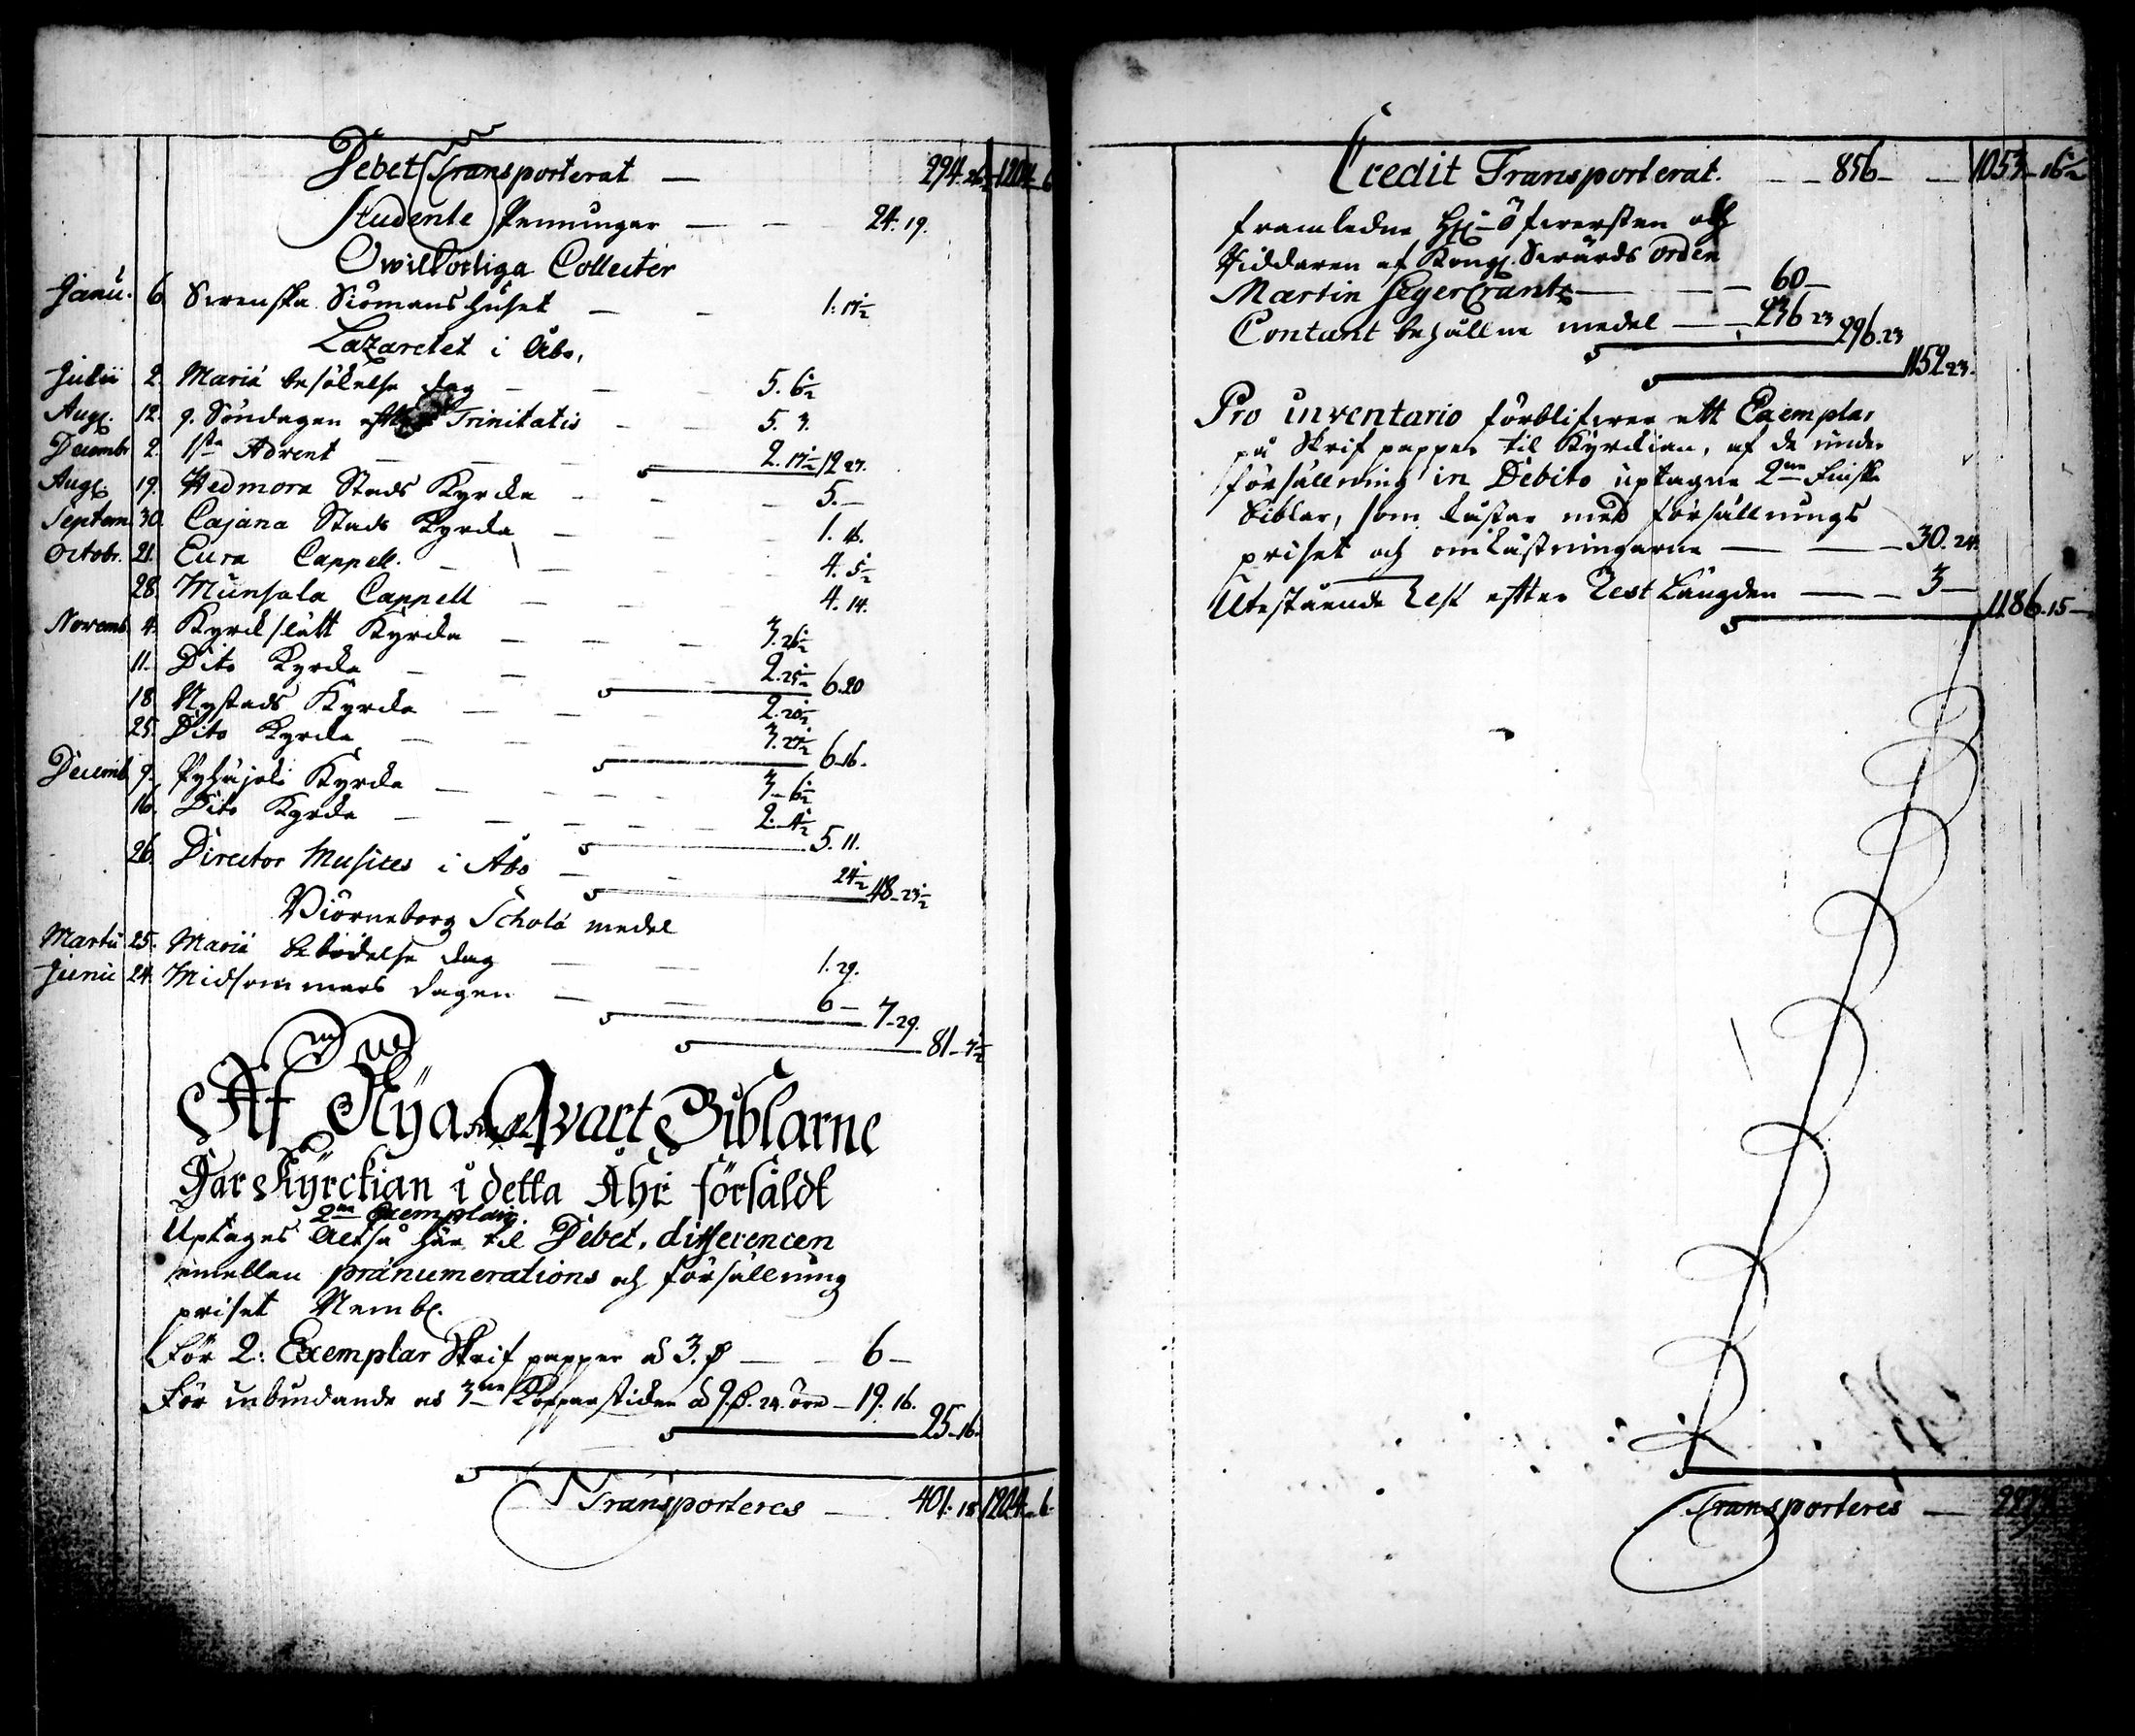 Debet Transporterat — 294. 26½ 1204. 6
Studente Penningar — — — 24. 19.
Owilkorliga Collecter
Janu. 6 Swenska Siömans huset — — 1. 17½
Lazarettet i Åbo,
Julii 2. Mariæ besökelse dag — — 5. 6½
Aug. 12. 9. Söndagen efter Trinitatis — — 5. 3.
Decembr 2. 1sta Advent — — — 2. 17½ 12 27.
Aug. 19. Hedmora Stads Kyrcka — — 5. —
Septem. 30. Cajana Stads Kyrcka — — 1. 16.
Octobr. 21. Eura Cappell. — — — 4. 5½
28. Munsala Cappell — — — 4. 14.
Novemb. 4. Kyrckslätt Kyrcka — — — 3. 26½
11. Dito Kyrcka — — — 2. 25½ 6. 20
18 Nystads Kyrcka — — — 2. 20½
25. Dito Kyrcka — — 3. 27½ 6. 16.
Decemb 9. Pyhäjoki Kyrcka — — — 3 — 6½
16. Dito Kyrcka — — — — — 2. 4½
5. 11.
26. Director Musices i Åbo — — 24½ 48. 23½
Biörneborg Scholæ medel
Martii 25. Mariæ bebådelse dag — — 1. 29.
Junii 24. Midsommars dagen — — 6 — 7. 29.
81. 7½
Af Nÿa Finska Qvart Biblarne
Har Kÿrckian i detta Åhr försåldt
2ne Exemplar.
Uptages Altså här til Debet, differencen
emellan prænumerations och försällning
priset Nembl.
För 2: Exemplar Skrif papper á 3. — — 6 —
För inbindande as 3ne Kopparstider á 9. 24 öre — 19. 16.
25. 16.
Transporteres — 401. 18 1204. 6.
Credit Transporterat. — — 856 — — 1053. 16½
framledne H. Öfwersten och
Riddaren af Kongl. Swärds Orden
Martin Segercrantz — — — 60 —
Contant behållne medel — — 236 23 296. 23
1152 23.
Pro inventario förblifwer ett Exemplar
på Skrif papper til Kyrckian, af de under
försällning in Debito uptagne 2ne Finska
Biblar, som kåstar med försällnings
priset och omkåstningarne — — — 30. 24.
Utestående Rest efter Rest Längden — — 3 —
1186. 15 —
Transporteres —